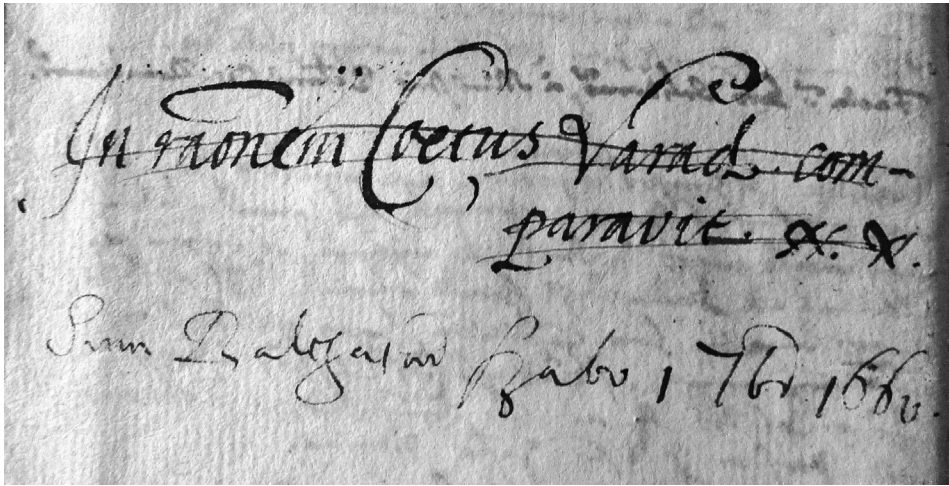 In raonem Coetus Varad. com-
paravit. X. X.
Sum Balthasari Szabo 1 7br 1660.